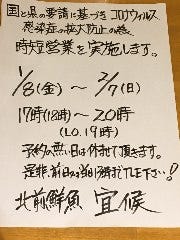 国と県の要請に基づきコロナウィルス
感染症の拡大防止の為、
時短営業を実施します。
1/8(金)～2/7(日)
17時(18時)～20時
(L.O.19時)
予約の無い日は休ませて頂きます。
是非、前日の
TEL下さい!
北前鮮魚 宜候